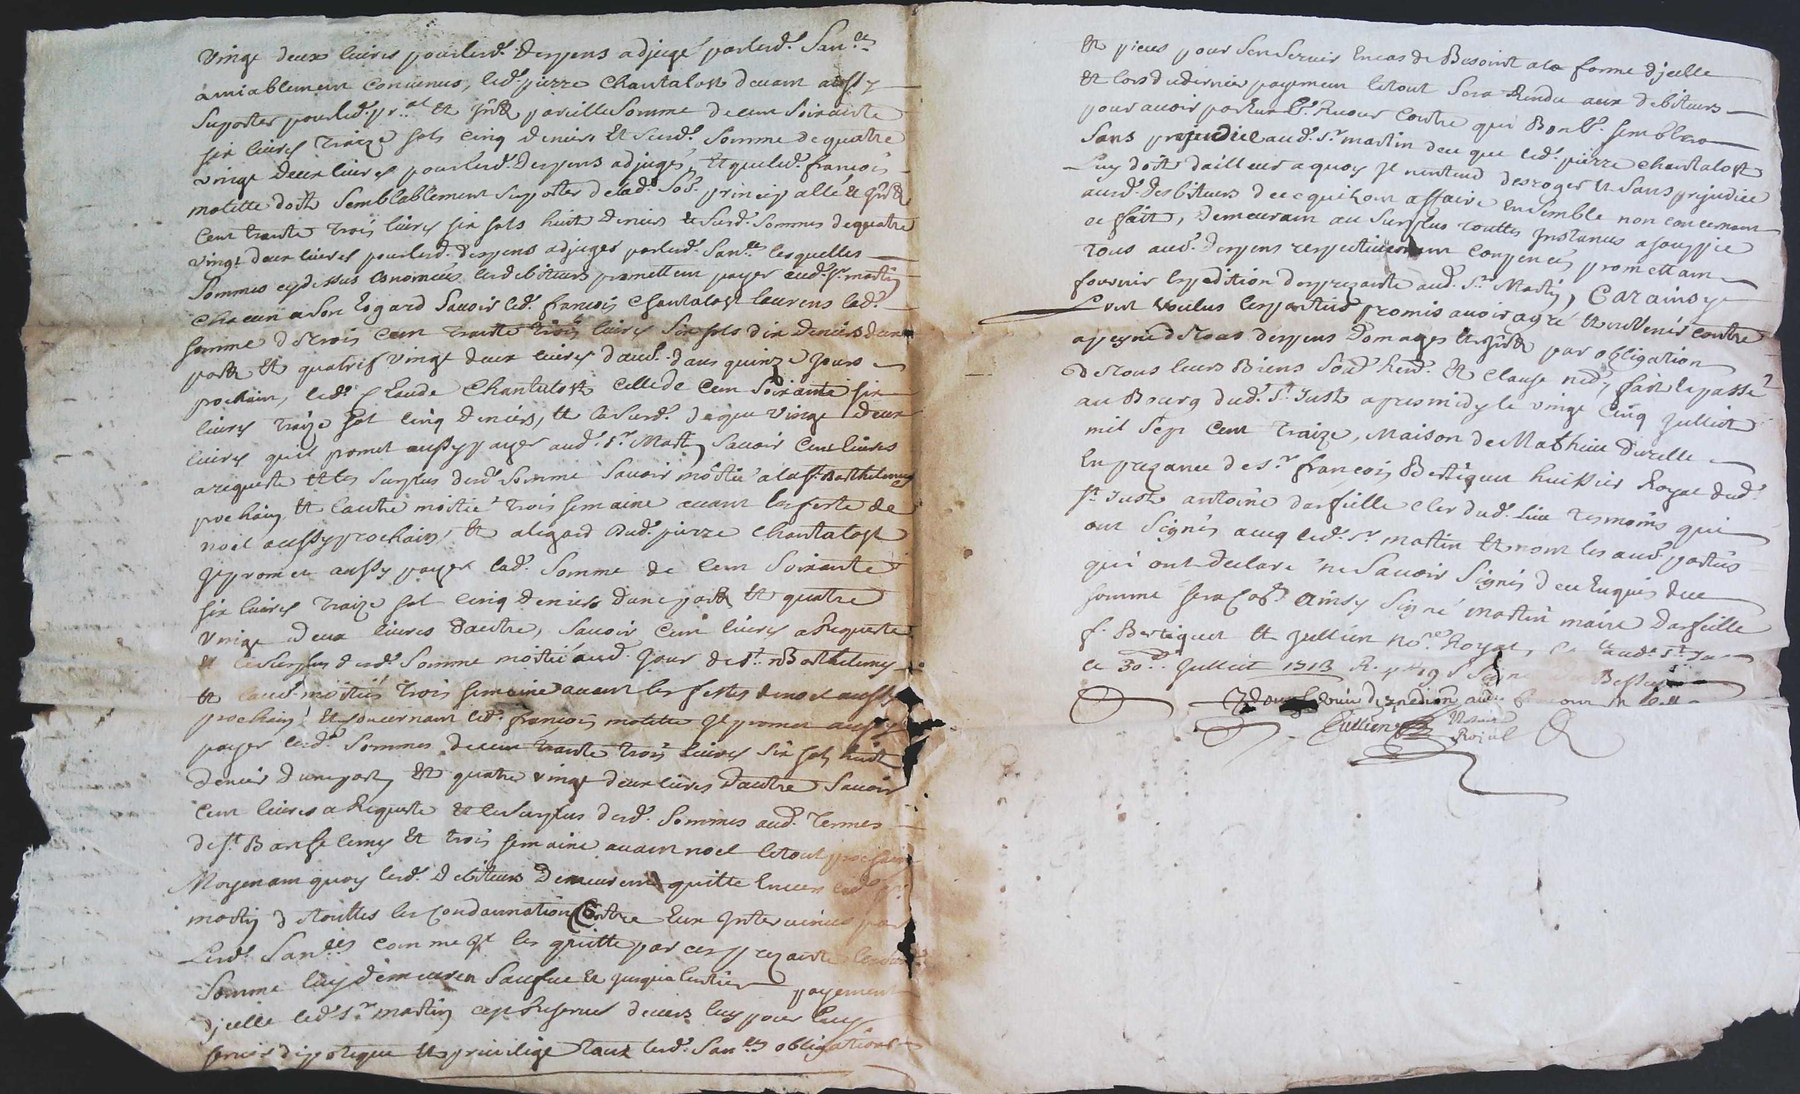 vingt deux livres pour lesd. despens adjugé par lesd. San.ces
amiablement convenus, led. pierre Chantalost devant aussy
suporter pour led. pr.al et Jnst pareille somme de cent soixante
six livres traize sols cinq deniers et surd. somme de quatre
vingt deux livres pour lesd. despens adjugés, et que led. françois
motette doit semblablement suporter de lad. so. principalle et Jnst
Cent trante trois livres six sols huit deniers et surd. sommes de quatre
vingt deux livres pour lesd. despens adjuges par lesd. San.ces lesquelles
sommes cy dessus les debiteurs promettent payer aud. sr. martin
chacun a son Esgard savoir led. françois Chantalost laurens lad.
somme de trois cent trante trois livres six sols dix deniers d'une
part et quatres vingt deux livres d'aut. dans quinze jours
prochain, led. Claude Chantalost celle de Cent soixante six
livres traize sol cinq deniers, et lesurd. de quatre vingt deux
livres quil promet aussy payer aud. sr. Martin savoir Cent livres
a requeste et le surplus desd. somme savoir moitié a la st. Barthelemy
prochain et l'autre moitié trois semaine avant les feste de
noel aussy prochain, et a legard dud. pierre Chantalost
Jl promet aussy payer lad. somme de Cent soixante
six livres traize sol cinq deniers d'une part et quatre
vingt deux livres d'autre, savoir Cent livres a Requeste
et le surplus desd. somme moitié aud. jour de st. Barthelemy
et l'aut. moitié trois semaine avant les festes de noel aussy
prochain, et concernant led. françois motette Jl promet aussy
payer lesd. sommes de cent trante trois livres six sols huit
deniers d'une part, et quatre vingt deux livres d'autre savoir
Cent livres a Requeste et le surplus desd. sommes aud. termes
de st. Barthelemy et trois semaine avant noel le tout prochain
Moyenant quoy lesd. debiteurs demeurent quitte envers led. sr.
martin de toutes les Condamnations Contre Eux Jntervenues par
Lesd. San.ces comme Jl les quitte par ces prezante lesd.
somme luy demeuren saufve et jusqua l'entier payement
djcelle led. sr. martin cest Reservé devers luy pour luy
servir dipoteque et privilege tant lesd. San.ces obligations
et pieces pour s'en servir En cas de Besoint a la forme djcelle
et lors du dernier payement le tout sera Rendu aux debiteurs
pour avoir par Eux le. Recour Contre qui Bon l. semblera
Sans prejudice aud. sr. martin de ce que led. pierre Chantalost
Luy doit d'ailleur a quoy Jl n'entend desroger et sans prejudice
aud. desbiteurs de ce quil ont affaire Ensemble non concernant
ce fait, demeurant au surplus toutes Jnstances assoupie
tous aud. despens respectivement compencés, promettant
fournir Expedition des prezante aud. sr. Martin, Car ainsy
L'ont voulus les parties promis avoir agré et ne venir contre
a peyne de tous despens domages et Jnst par obligation
de tous leurs Biens soud. Rend. et clause nec., fait et passé
au Bourg dud. st. Just apres midy le vingt cinq Julliet
mil sept cent traize, Maison de Mathieu Durelle
En prezance de sr. françois Bertiquet huissier Royal dud.
st. Just antoine darfeille clerc dud. lieu tesmoins qui
ont signés avec led. sr. martin et non les aud. parties
qui ont declaré ne savoir signés de ce Enquis et ce
somme sera Co. ainsy signé martin maire Darfeille
f. Bertiquet et Jullien no.re Royal, Co. aud. st. Just
ce 30.e Julliet 1713 R.
Jullien Notaire
Royal